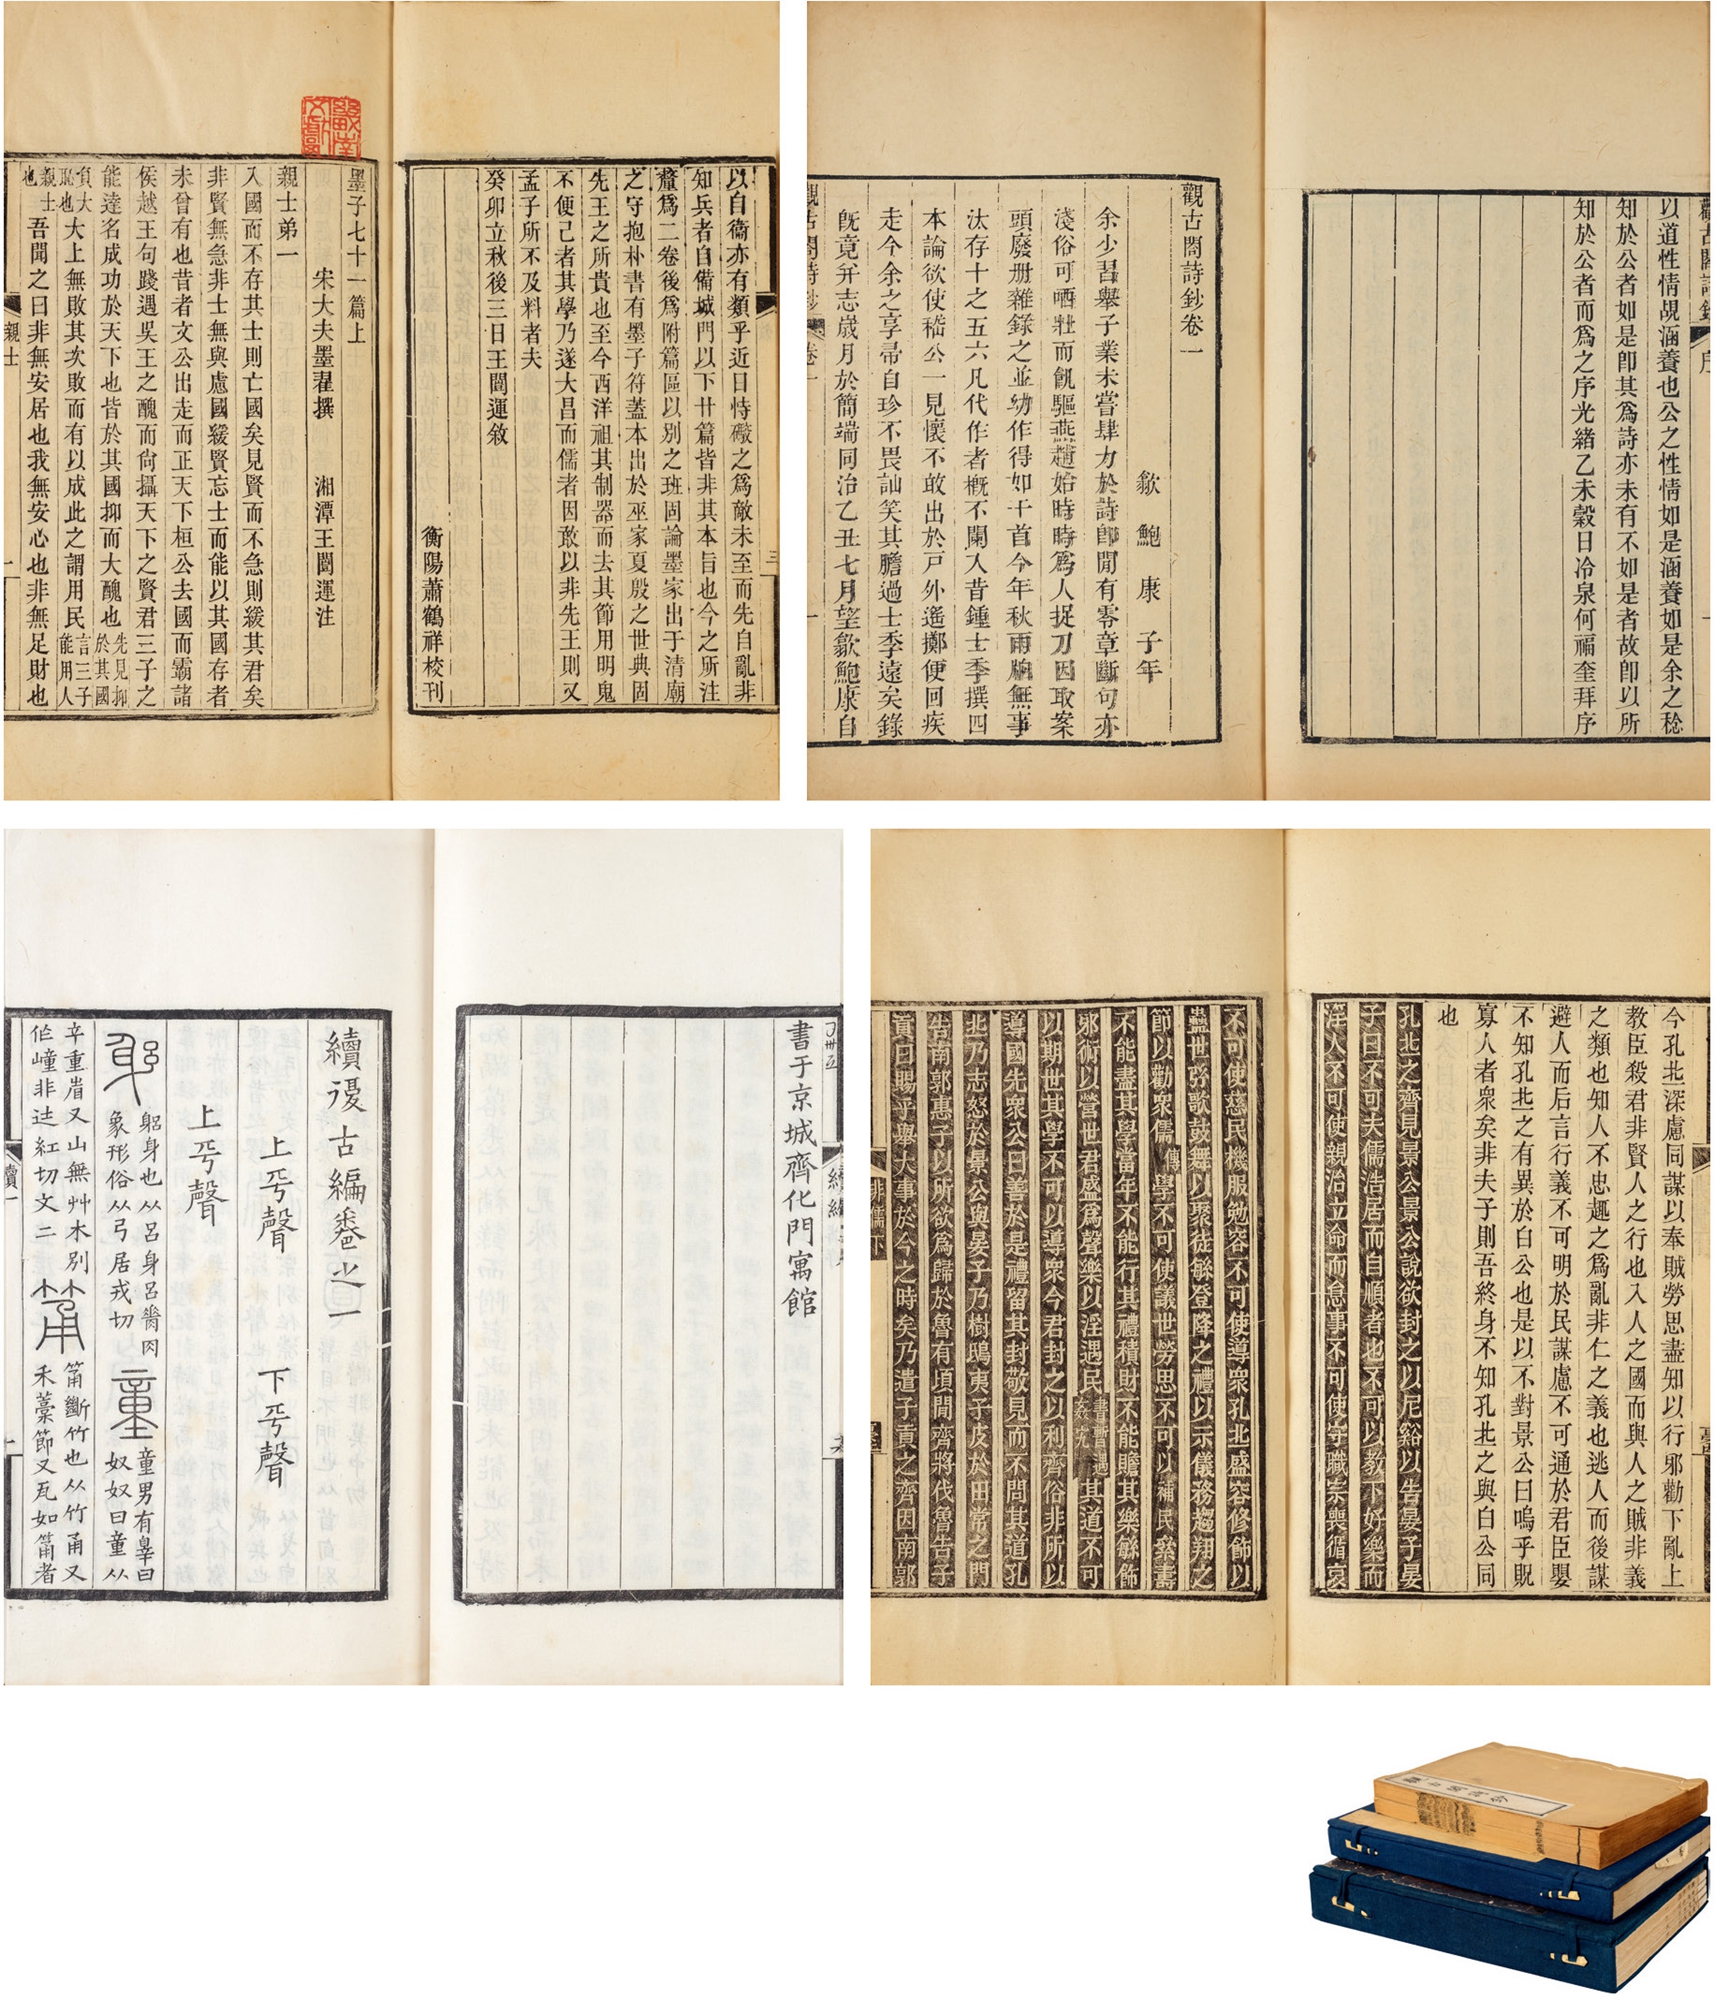 以自衞亦有類乎近日恃礮之爲敵未至而先自亂非
知兵者自備城門以下廿篇皆非其本旨也今之所注
釐爲二卷後爲附篇區以別之班固論墨家出于清廟
之守抱朴書有墨子符蓋本出於巫家夏殷之世典固
先王之所貴也至今西洋祖其制器而去其節用明鬼
不便己者其學乃遂大昌而儒者因敢以非先王則又
孟子所不及料者夫
癸卯立秋後三日王闓運敘
衡陽蕭鶴祥校刊
墨子七十一篇上
宋大夫墨翟撰 湘潭王闓運注
親士弟一
入國而不存其士則亡國矣見賢而不急則緩其君矣
非賢無急非士無與慮國緩賢忘士而能以其國存者
未曾有也昔者文公出走而正天下桓公去國而霸諸
侯越王句踐遇吳王之醜而尙攝天下之賢君三子之
能達名成功於天下也皆於其國抑而大醜也先見抑於其國
言三子能用人負大恥也大上無敗其次敗而有以成此之謂用民
親士也吾聞之曰非無安居也我無安心也非無足財也
親士
一
觀古閣詩鈔
序
以道性情覘涵養也公之性情如是涵養如是余之稔
知於公者如是卽其爲詩亦未有不如是者故卽以所
知於公者而爲之序光緒乙未穀日冷泉何福奎拜序
觀古閣詩鈔卷一
歙 鮑 康 子年
余少習舉子業未嘗肆力於詩卽閒有零章斷句亦
淺俗可哂壯而飢驅燕趙始時時爲人捉刀因取案
頭廢册雜錄之並幼作得如干首今年秋雨牕無事
汰存十之五六凡代作者槪不闌入昔鍾士季撰四
本論欲使嵇公一見懷不敢出於戸外遙擲便回疾
走今余之享帚自珍不畏訕笑其膽過士季遠矣錄
旣竟弁志歲月於簡端同治乙丑七月望歙鮑康自
觀古閣詩鈔
卷一
書于京城齊化門寓館
續復古編卷之一
上平聲
下平聲
上平聲
躳身也从呂身呂膂肉
象形俗从弓居戎切
童男有辠曰
奴奴曰童从
辛重省又山無艸木別
作㠉非迬紅切文二
筩斷竹也从竹甬又
禾藁節又瓦如筩者
續一
今孔丘深慮同謀以奉賊勞思盡知以行邪勸下亂上
教臣殺君非賢人之行也入人之國而與人之賊非義
之類也知人不忠趣之爲亂非仁之義也逃人而後謀
避人而后言行義不可明於民謀慮不可通於君臣嬰
不知孔丘之有異於白公也是以不對景公曰嗚乎貺
寡人者衆矣非夫子則吾終身不知孔丘之與白公同
也
孔丘之齊見景公景公說欲封之以尼谿以告晏子晏
子曰不可夫儒浩居而自順者也不可以教下好樂而
淫人不可使親治立命而怠事不可使守職宗喪循哀
不可使慈民機服勉容不可使導衆孔丘盛容修飾以
蠱世弦歌鼓舞以聚徒緐登降之禮以示儀務趨翔之
節以勸衆儒傳學不可使議世勞思不可以補民絫壽
不能盡其學當年不能行其禮積財不能贍其樂緐飾
邪術以營世君盛爲聲樂以淫遇民其道不可
以期世其學不可以導衆今君封之以利齊俗非所以
導國先衆公曰善於是禮留其封敬見而不問其道孔
丘乃志怒於景公與晏子乃樹鴟夷子皮於田常之門
告南郭惠子以所欲爲歸於魯有頃間齊將伐魯告子
貢曰賜乎舉大事於今之時矣乃遣子貢之齊因南郭
非儒下